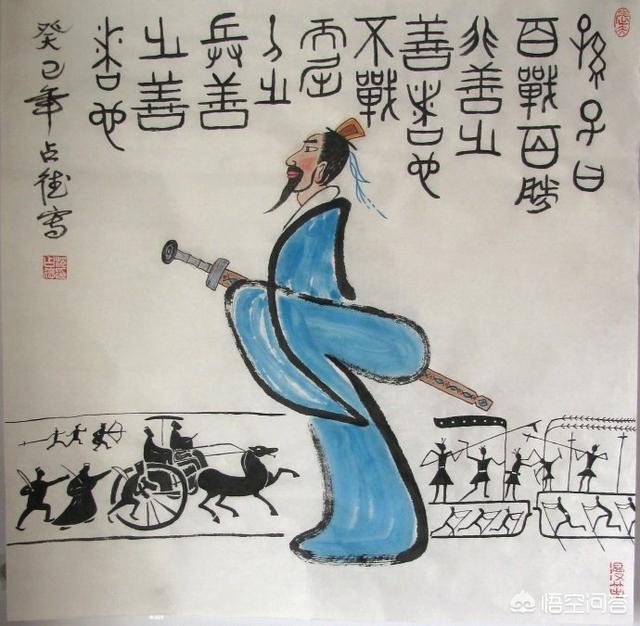 孫子曰
百戰百勝
非善之
善者也
不戰
而屈
人之
兵善
之善
者也
癸巳年占寫
悟空问答